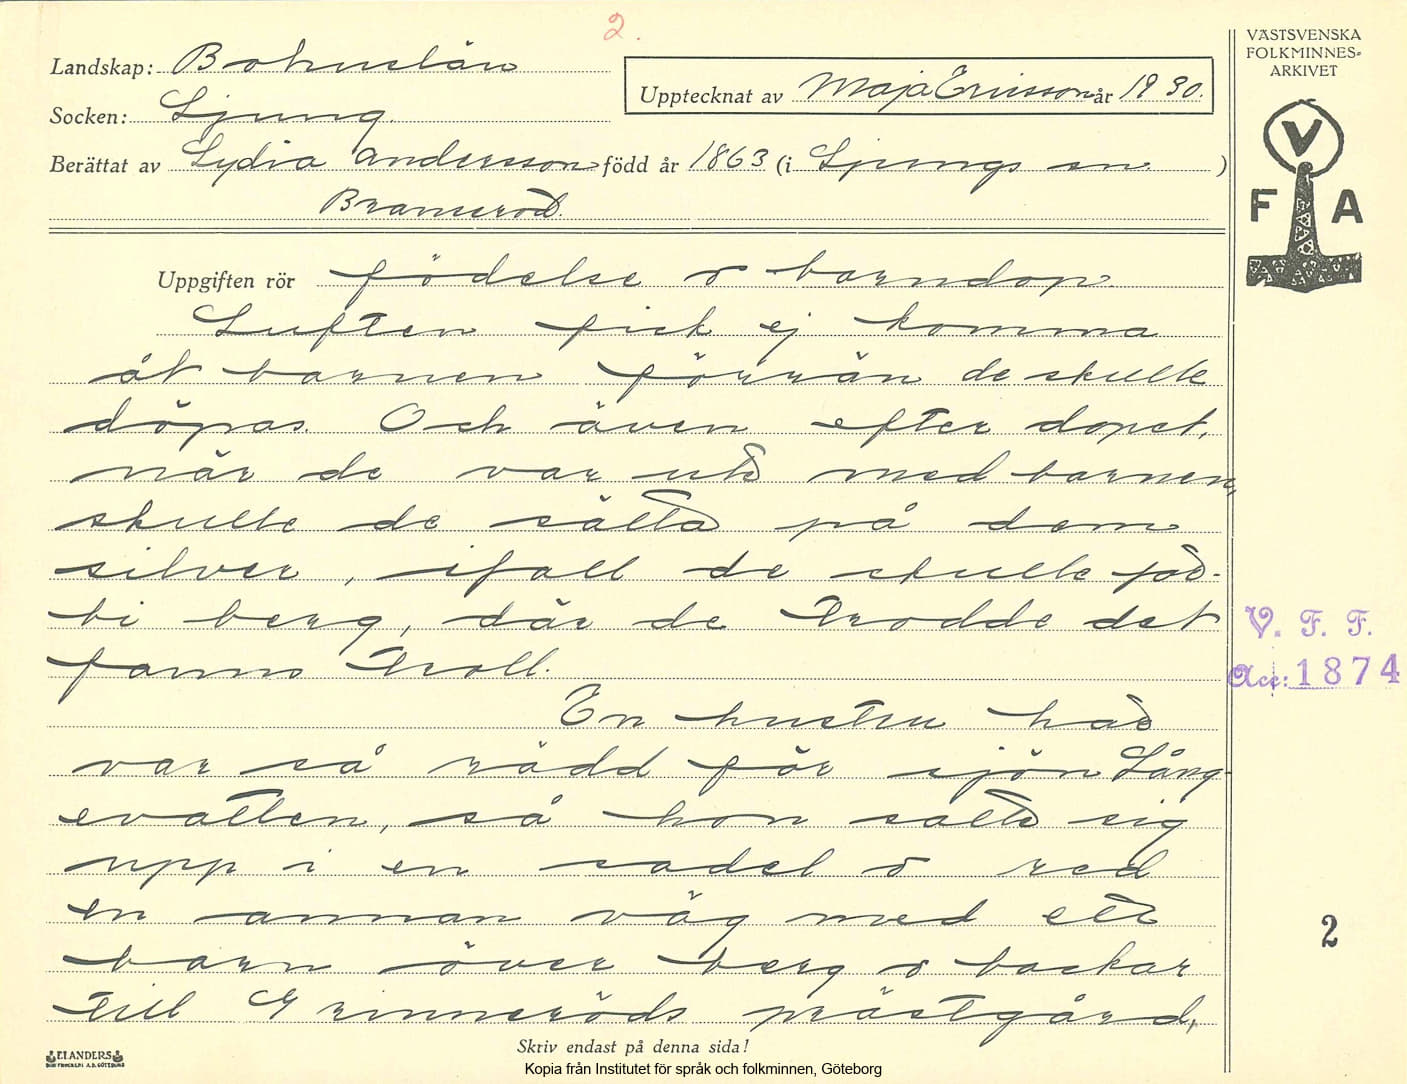 2.
VÄSTSVENSKA
FOLKMINNES-
ARKIVET
V
F A
Landskap: Bohuslän
Upptecknat av Maja Ericsson år 1930.
Socken: Ljung
Berättat av Lydia Andersson född år 1863 (i Ljungs sn )
Bramseröd.
Uppgiften rör födelse o barndop.
Luften fick ej komma
åt barnen förrän de skulle
döpas. Och även efter dopet,
när de var ute med barnen,
skulle de sätta på dem
silver, ifall de skulle för-
bi berg, där de trodde det
fanns troll.
En hustru här
var så rädd för sjön Lång-
evatten, så hon satte sig
upp i en sadel o red
en annan väg med ett
barn över berg o backar
till Grinneröds prästgård,
V. F. F.
Acc: 1874
2
ELANDERS
Skriv endast på denna sida!
Kopia från Institutet för språk och folkminnen, Göteborg